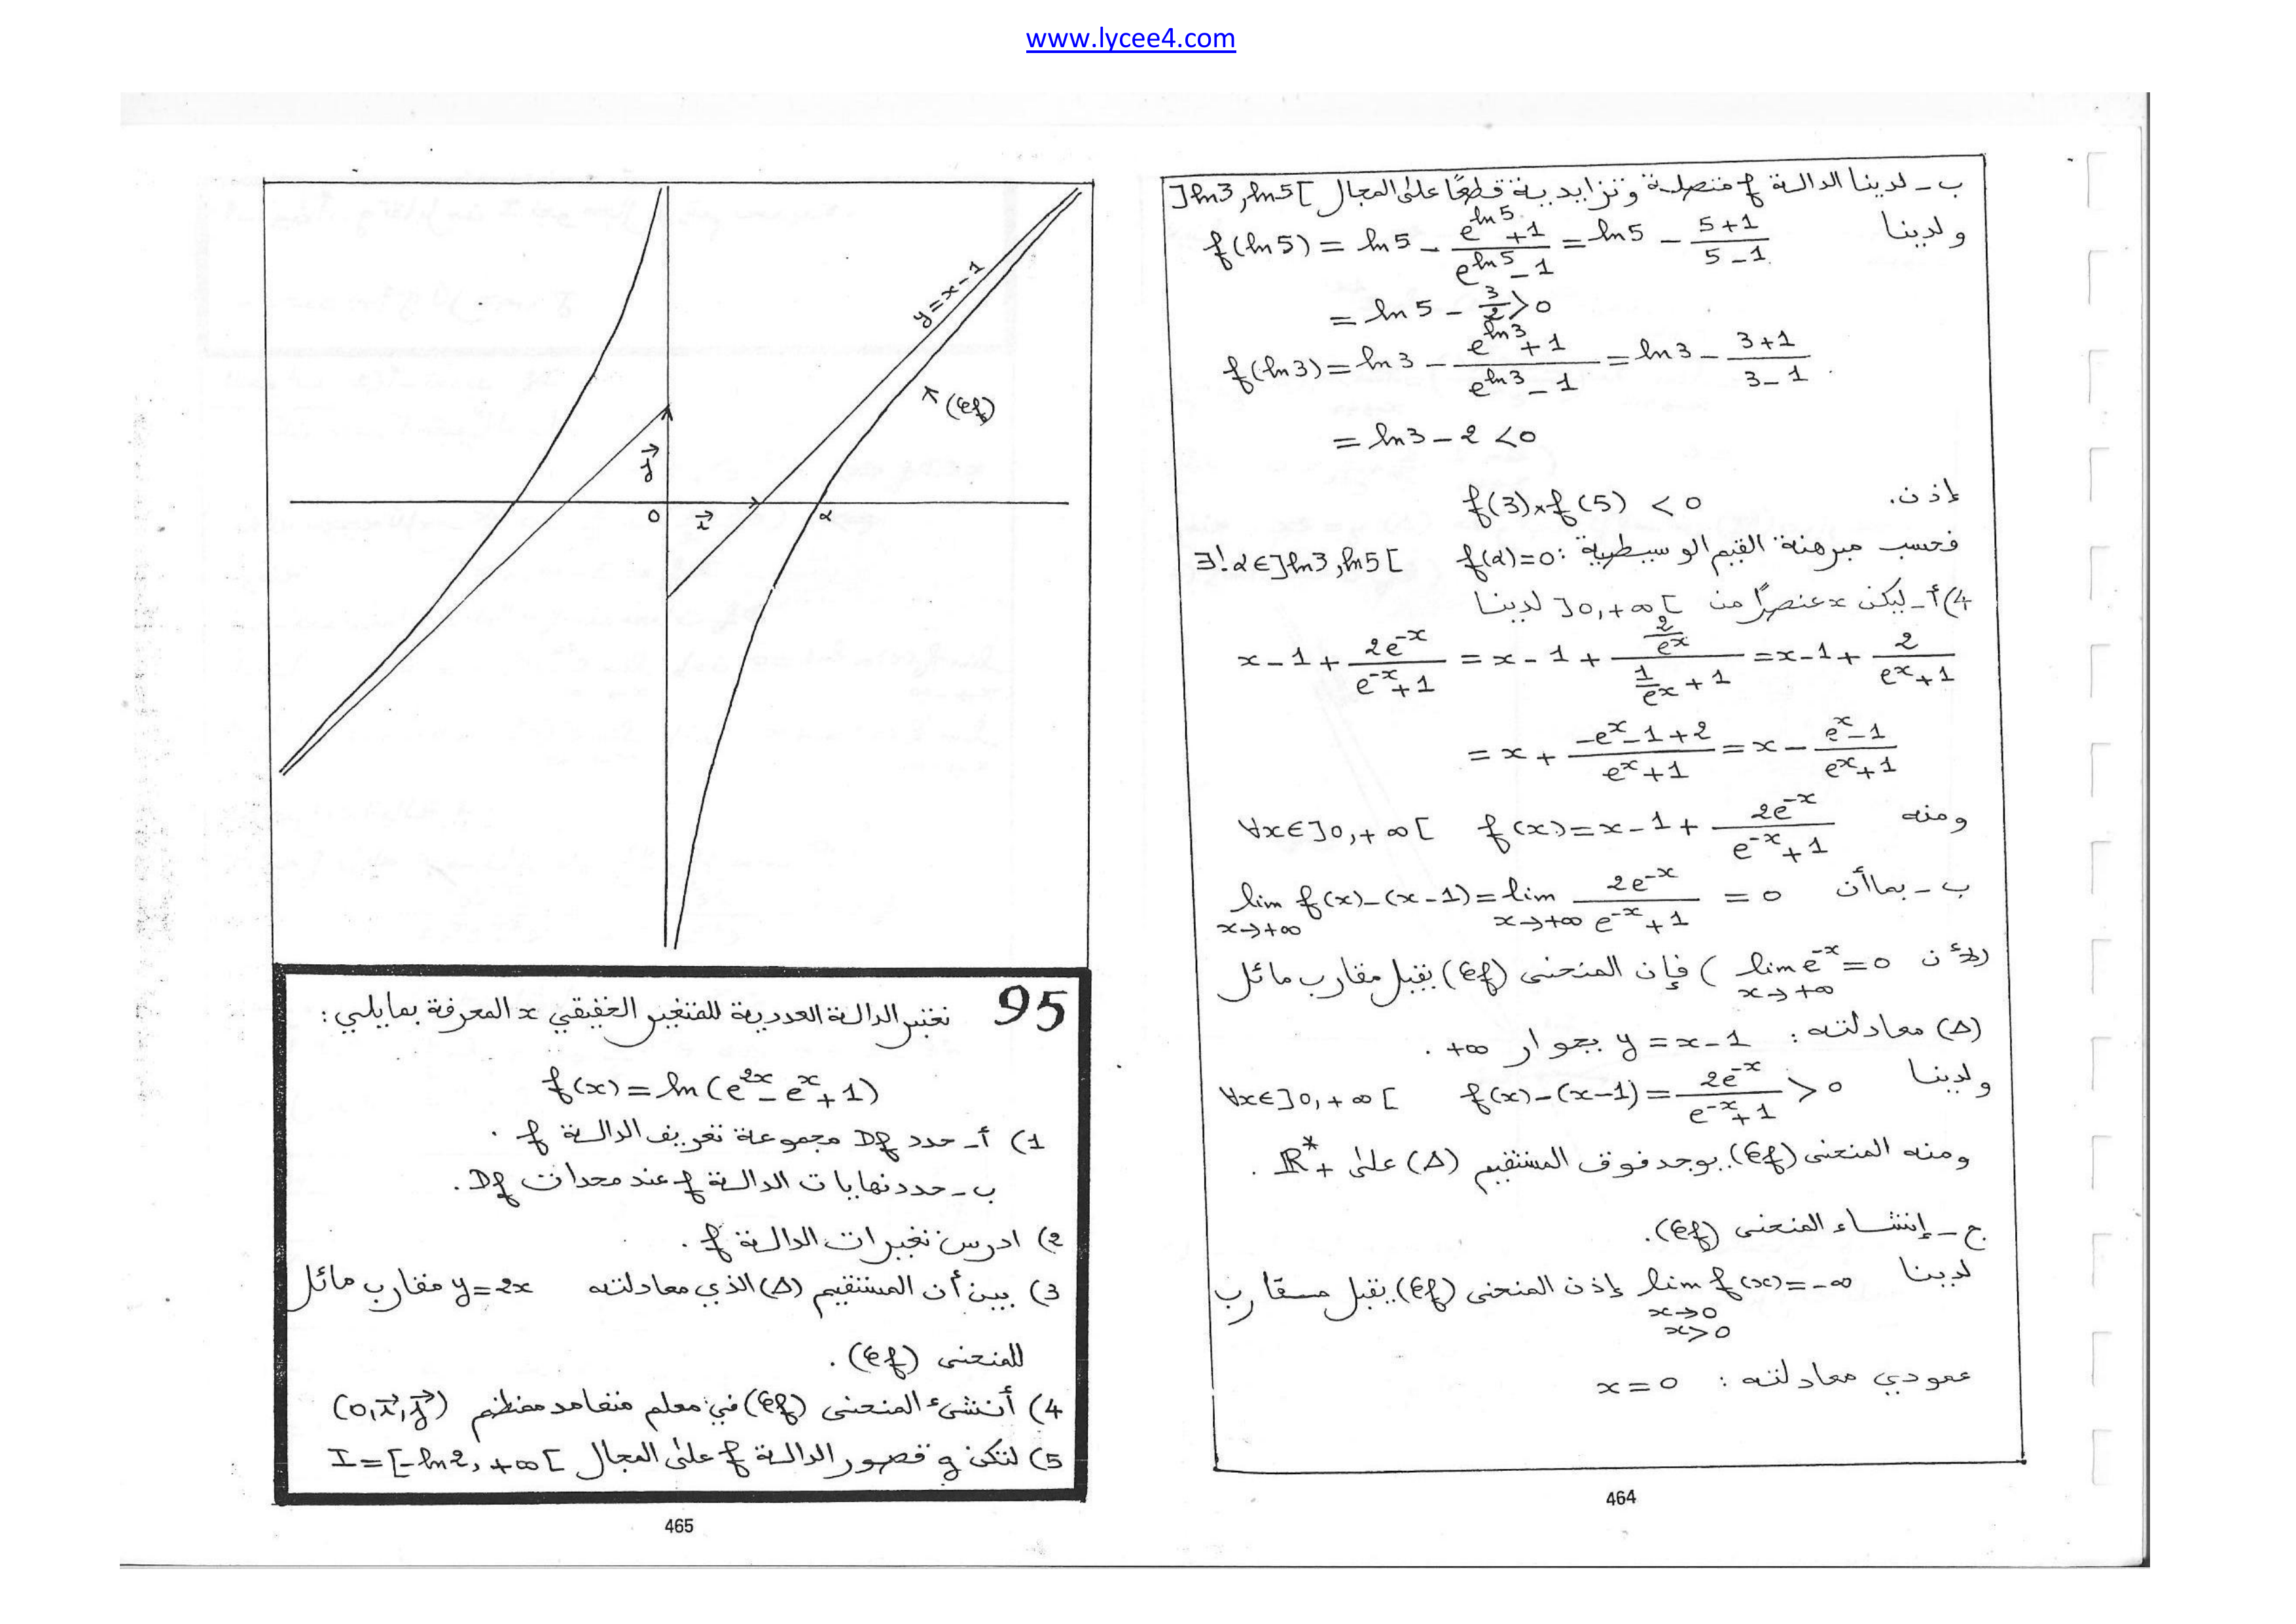 www.lycee4.com
ب - لدينا الدالة f متصلة وتزايدية قطعًا على المجال ]ln3, ln5[
ولدينا f(ln5) = ln5 - (e^{ln5}+1)/(e^{ln5}-1) = ln5 - (5+1)/(5-1)
= ln5 - 3/2 > 0
f(ln3) = ln3 - (e^{ln3}+1)/(e^{ln3}-1) = ln3 - (3+1)/(3-1)
= ln3 - 2 < 0
إذن. f(3)×f(5) < 0
فحسب مبرهنة القيم الوسيطية: ∃!α∈]ln3, ln5[ f(α)=0
4) أ- ليكن x عنصرًا من ]0,+∞[ لدينا
x-1+ 2e^{-x}/(e^{-x}+1) = x-1+ (2/e^x)/(1/e^x +1) = x-1+ 2/(e^x+1)
= x + (-e^x-1+2)/(e^x+1) = x - (e^x-1)/(e^x+1)
ومنه ∀x∈]0,+∞[ f(x)=x-1+ 2e^{-x}/(e^{-x}+1)
ب - بما أن lim_{x→+∞} f(x)-(x-1) = lim_{x→+∞} 2e^{-x}/(e^{-x}+1) = 0
(لأن lim_{x→+∞} e^{-x}=0) فإن المنحنى (Cf) يقبل مقارب مائل
(Δ) معادلته: y = x-1 بجوار +∞.
ولدينا ∀x∈]0,+∞[ f(x)-(x-1) = 2e^{-x}/(e^{-x}+1) > 0
ومنه المنحنى (Cf) يوجد فوق المستقيم (Δ) على ℝ*+.
ج - إنشاء المنحنى (Cf).
لدينا lim_{x→0, x>0} f(x) = -∞ إذن المنحنى (Cf) يقبل مقارب
عمودي معادلته: x=0
464
y=x-1
(Cf)
j
0
i
α
95 نعتبر الدالة العددية للمتغير الحقيقي x المعرفة بما يلي:
f(x) = ln(e^{2x}-e^x+1)
1) أ- حدد Df مجموعة تعريف الدالة f.
ب - حدد نهايات الدالة f عند محدات Df.
2) ادرس تغيرات الدالة f.
3) بين أن المستقيم (Δ) الذي معادلته y=2x مقارب مائل
للمنحنى (Cf).
4) أنشئ المنحنى (Cf) في معلم متعامد ممنظم (0,i,j)
5) لتكن g قصور الدالة f على المجال I=[-ln2, +∞[
465